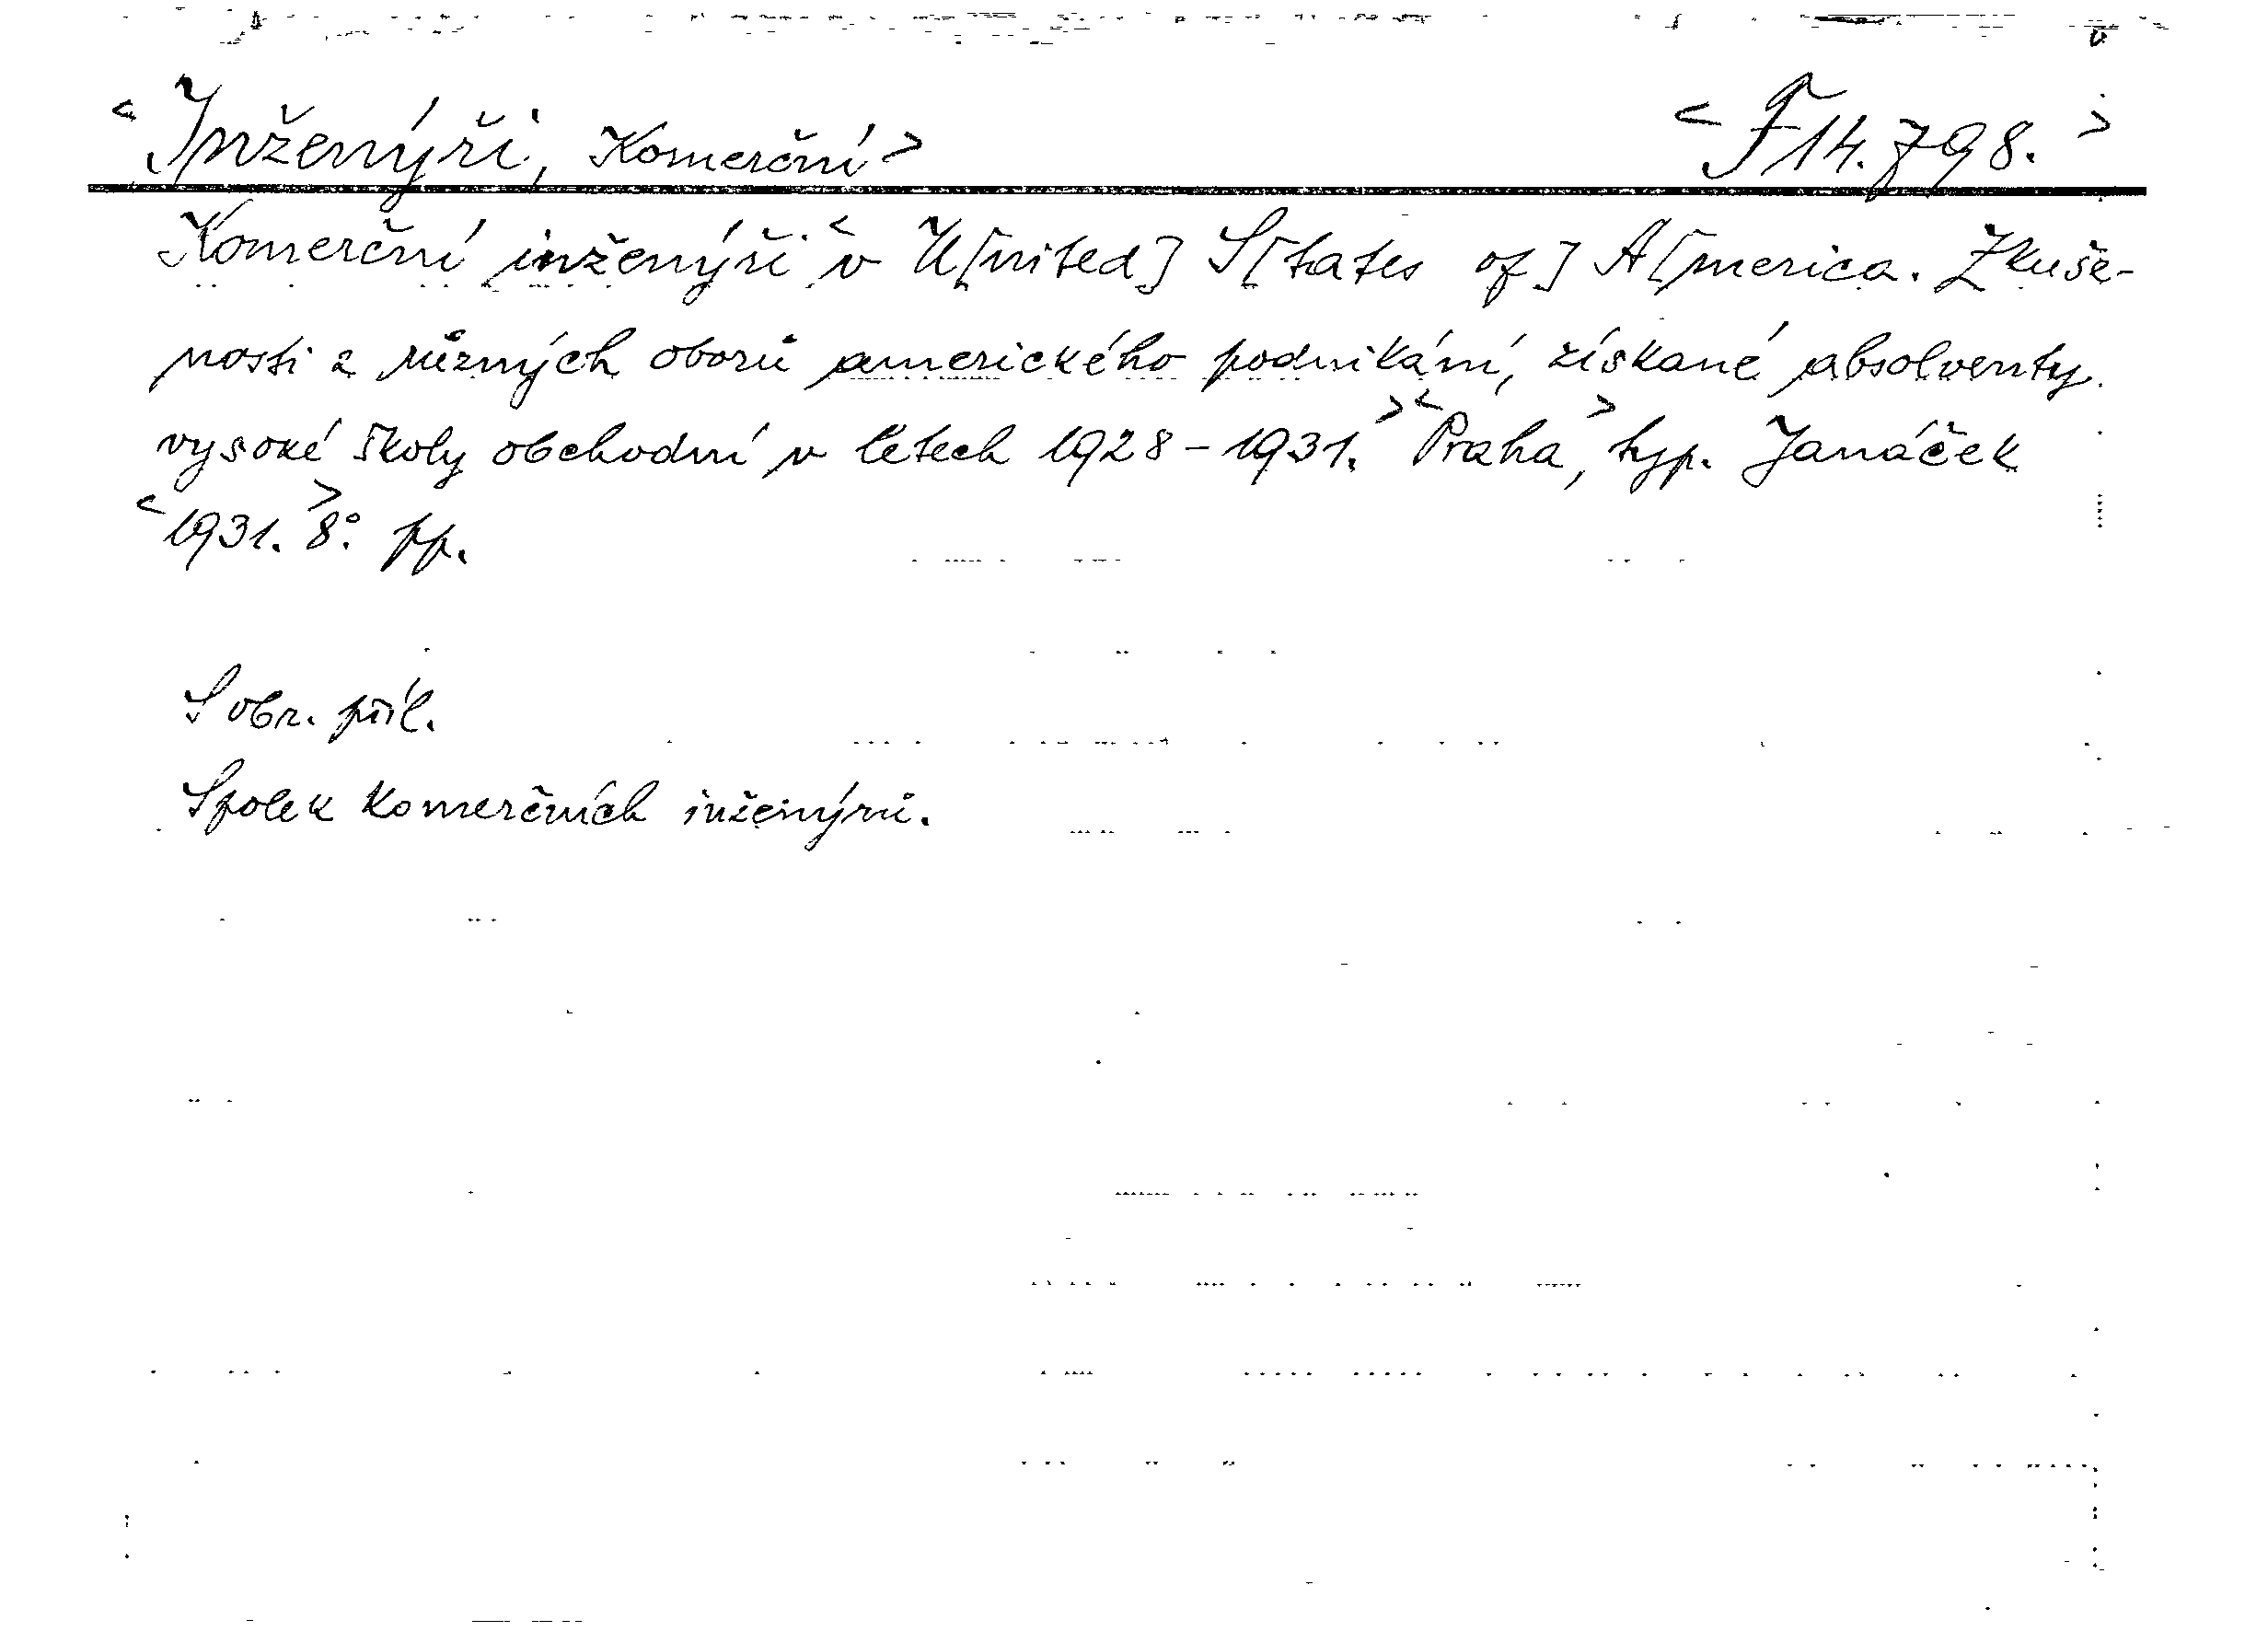 <Inženýři, Komerční> <F 14.798.>
Komerční inženýři <v U[nited] S[tates of] A[merica. Zkuše-
nosti z různých oborů amerického podnikání, získané absolventy
vysoké školy obchodní v letech 1928-1931.> <Praha,> typ. Janáček
<1931.> 8°. pp.
S obr. příl.
Spolek komerčních inženýrů.